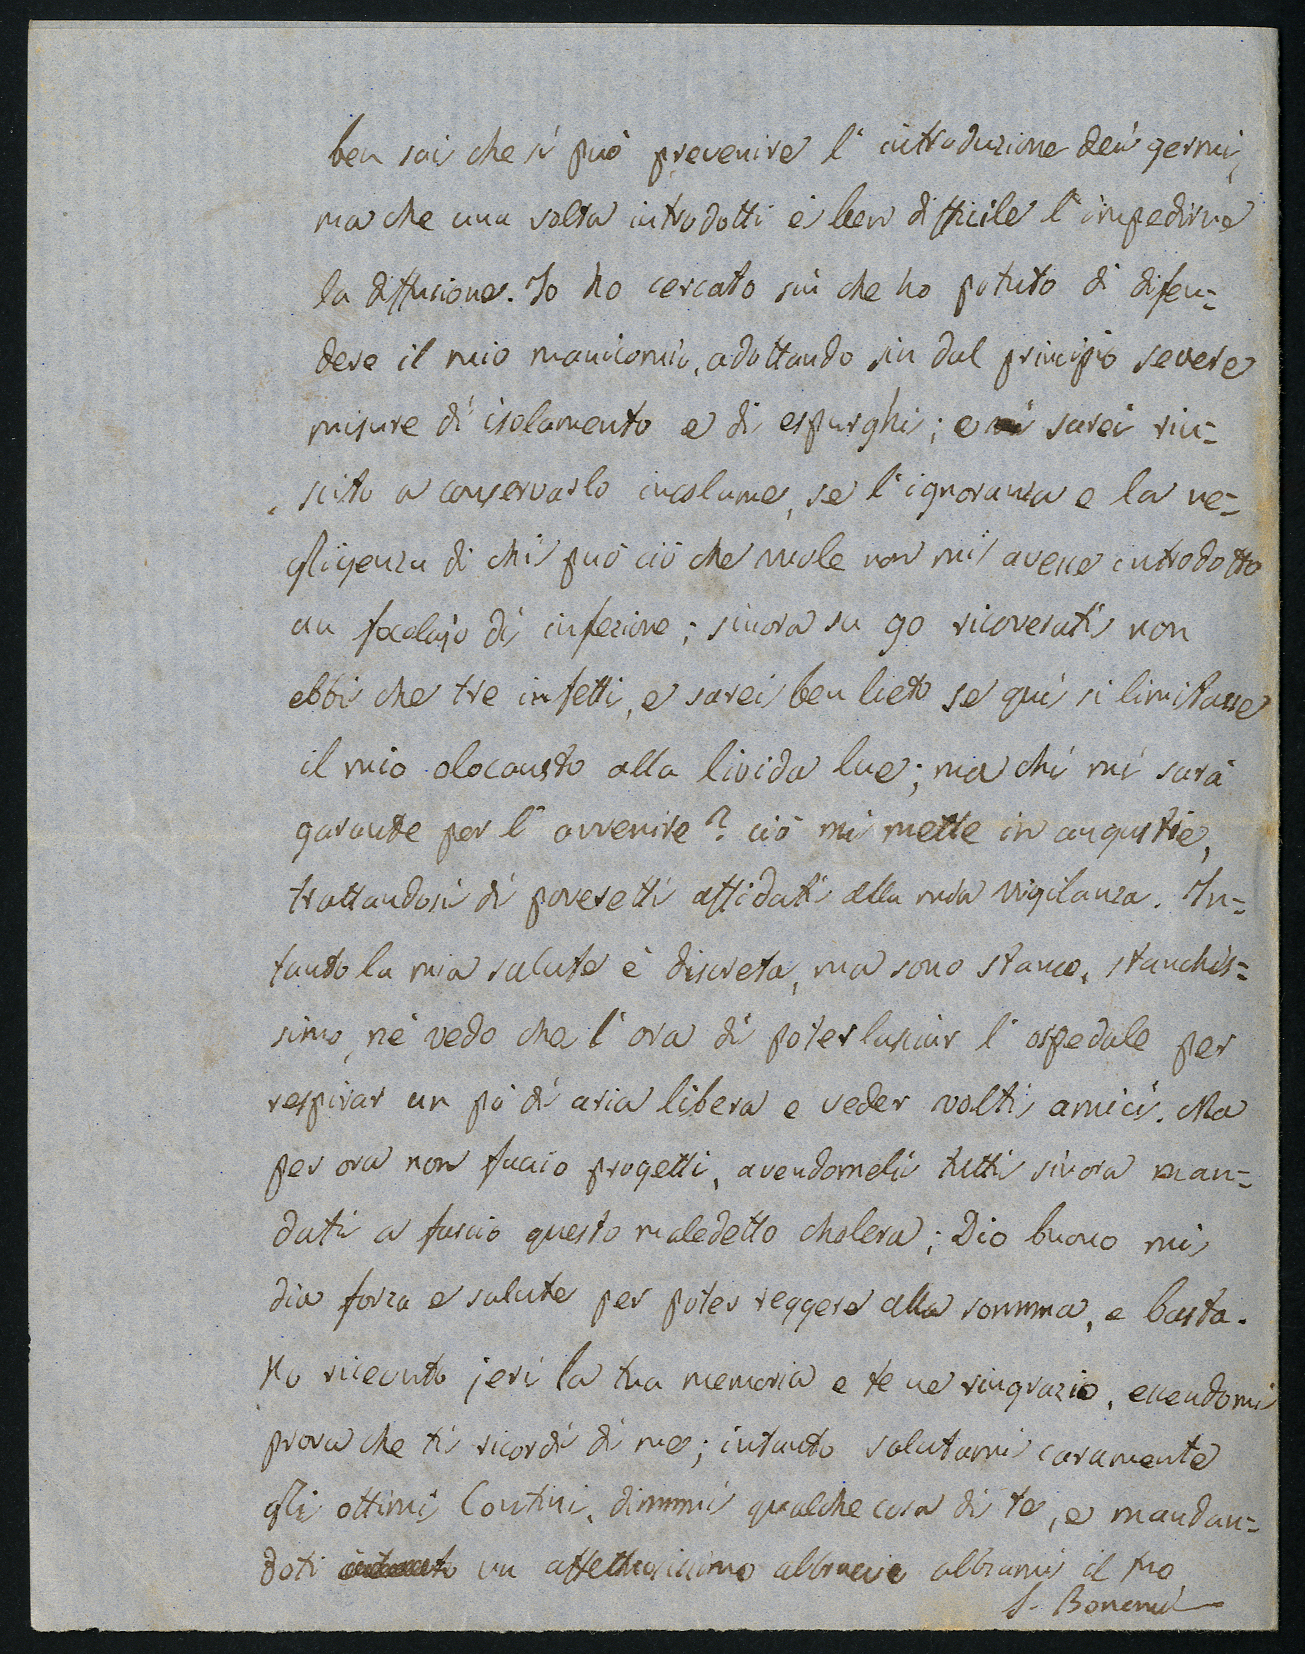 ben sai che si può prevenire l'introduzione dei germi,
ma che una volta introdotti è ben difficile l'impedirne
la diffusione. Io ho cercato sin che ho potuto di difen=
dere il mio manicomio, adottando sin dal principio severe
misure di isolamento e di espurghi; e sarei riu=
scito a conservarlo incolume, se l'ignoranza e la ne=
gligenza di chi può ciò che vuole non mi avesse introdotto
un focolajo di infezione; sinora su 90 ricoverati non
ebbi che tre infetti, e sarei ben lieto se quì si limitasse
il mio olocausto alla livida lue; ma chi mi sarà
garante per l'avvenire? ciò mi mette in angustie,
trattandosi di poveretti affidati alla mia vigilanza. In=
tanto la mia salute è discreta, ma sono stanco, stanchis=
simo, nè vedo che l'ora di poter lasciar l'ospedale per
respirar un pò di aria libera e veder volti amici. Ma
per ora non faccio progetti, avendomeli tutti sinora man=
dati a fascio questo maledetto cholera; Dio buono mi
dia forza e salute per poter reggere alla somma, e basta.
Ho ricevuto jeri la tua memoria e te ne ringrazio, essendomi
prova che ti ricordi di me; intanto salutami caramente
gli ottimi Contini, dimmi qualche cosa di te, e mandan=
doti un affettuosissimo abbraccio abbiami il tuo
S. Bonomi